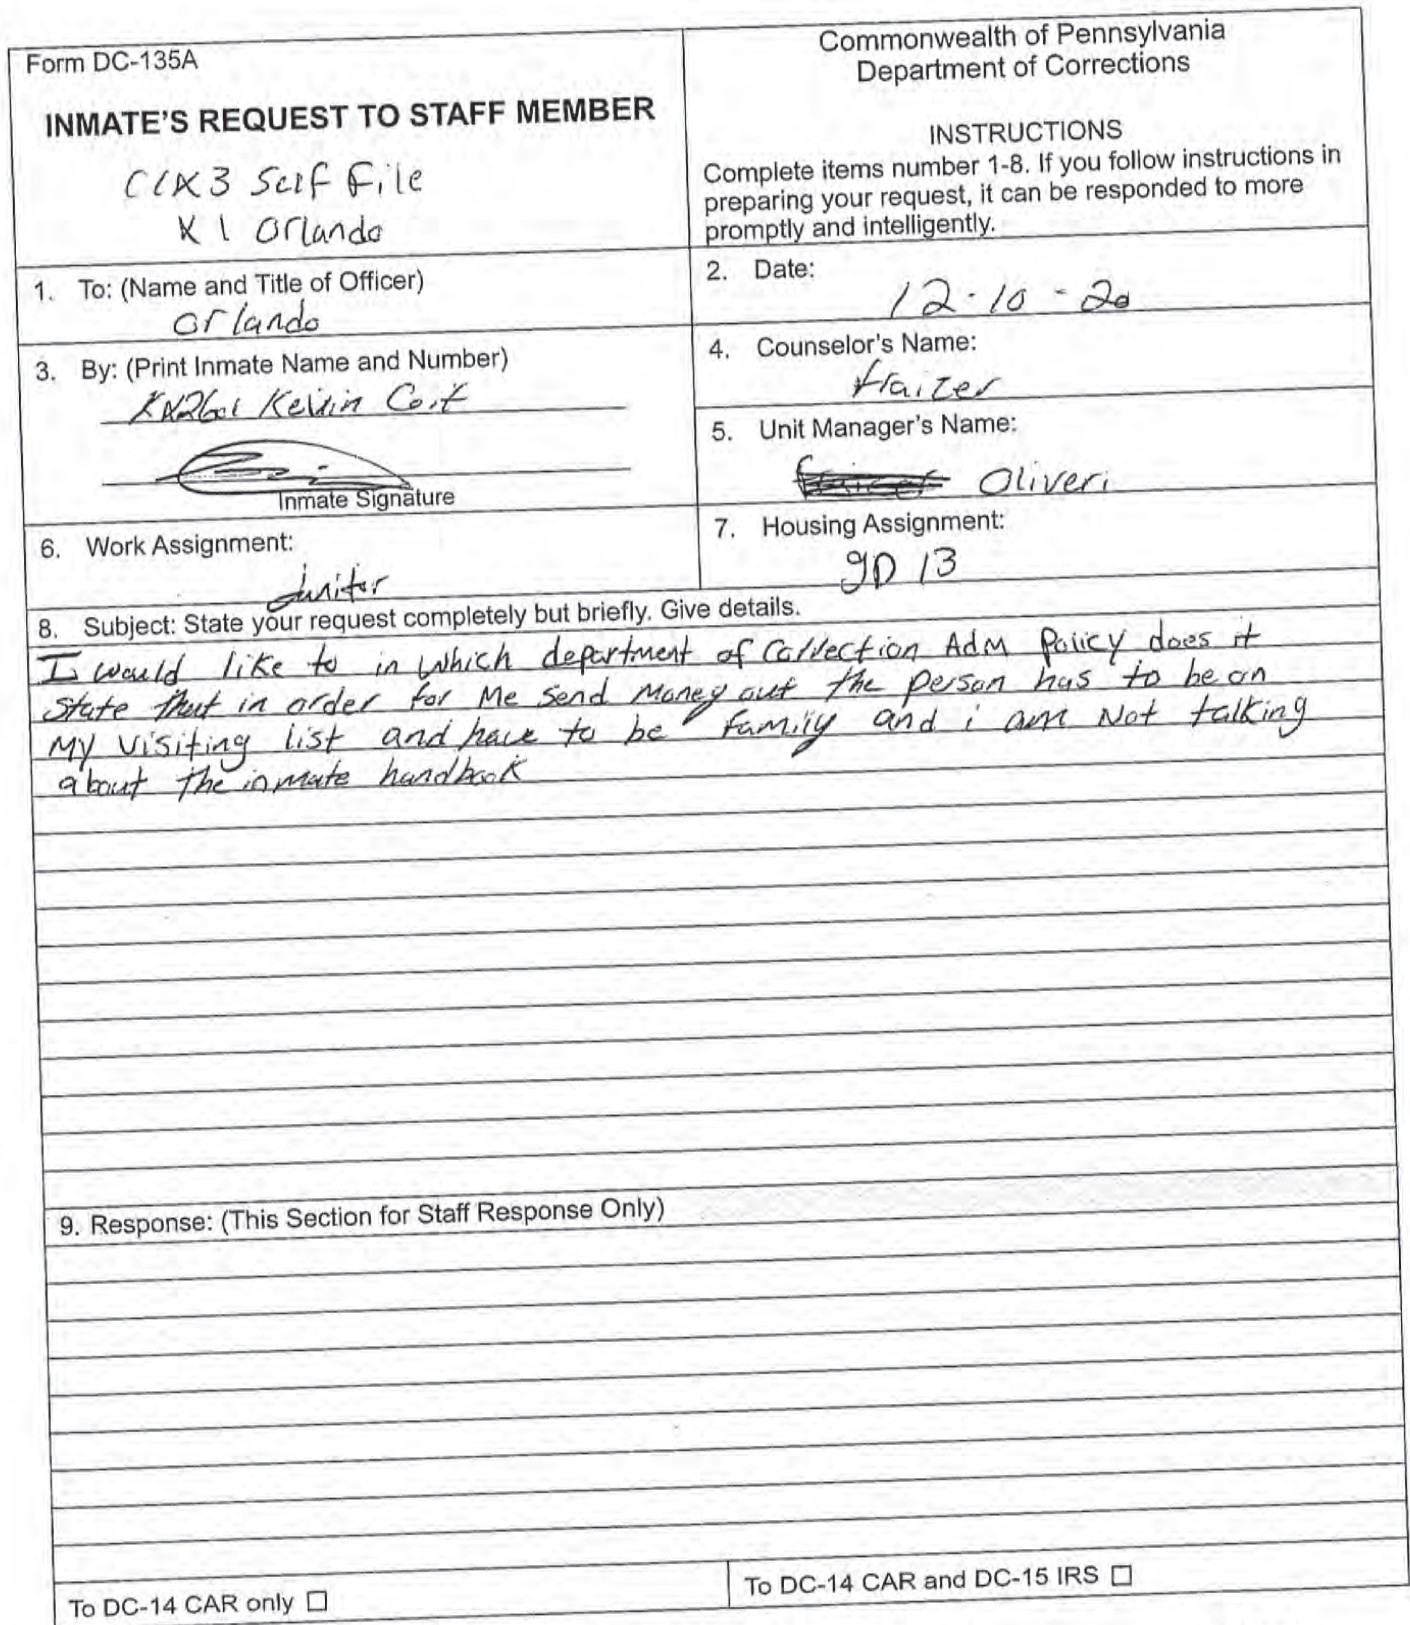 Form DC-135A
INMATE'S REQUEST TO STAFF MEMBER
Self File
X 1 Orlando
Commonwealth of Pennsylvania
Department of Corrections
INSTRUCTIONS
Complete items number 1-8. If you follow instructions in
preparing your request, it can be responded to more
promptly and intelligently.
1. To: (Name and Title of Officer)
Orlando
2. Date:
12-10-20
3. By: (Print Inmate Name and Number)
Kevin Coit
Inmate Signature
4. Counselor's Name:
5. Unit Manager's Name:
Oliveri
6. Work Assignment:
Junitor
7. Housing Assignment:
gD 13
8. Subject: State your request completely but briefly. Give details.
I would like to in which department of Collection Adm Policy does it
State that in order for Me send Money out the person has to be on
My visiting list and have to be family and i am Not talking
about the inmate handbook
9. Response: (This Section for Staff Response Only)
To DC-14 CAR only ☐
To DC-14 CAR and DC-15 IRS ☐